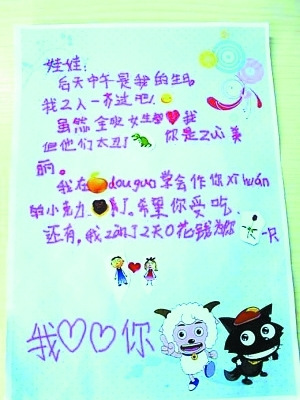 娃娃：
后天中午是我的生日
我2人一齐过吧！
虽然全班女生都我
但他们太丑了 你是Zuì美
丽。
我在dou guo 学会作你xǐ huán
的小点力 了。希望你爱吃
还有，我 了2天0花钱为你 一只
我♡♡你